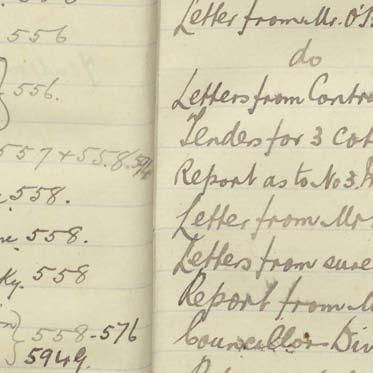 556
556.
557 + 558.
558.
558.
Ky. 558
558-576
594g.
Letter from Mr. O'B
do
Letters from Contra
Tenders for 3 Cot
Report as to No 3.
Letter from Mr
Letters from sure
Report from
Councillor Div